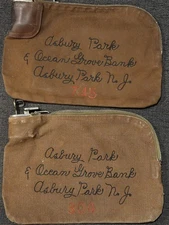 Asbury Park
& Ocean Grove Bank
Asbury Park N. J.
Asbury Park
& Ocean Grove Bank
Asbury Park N. J.